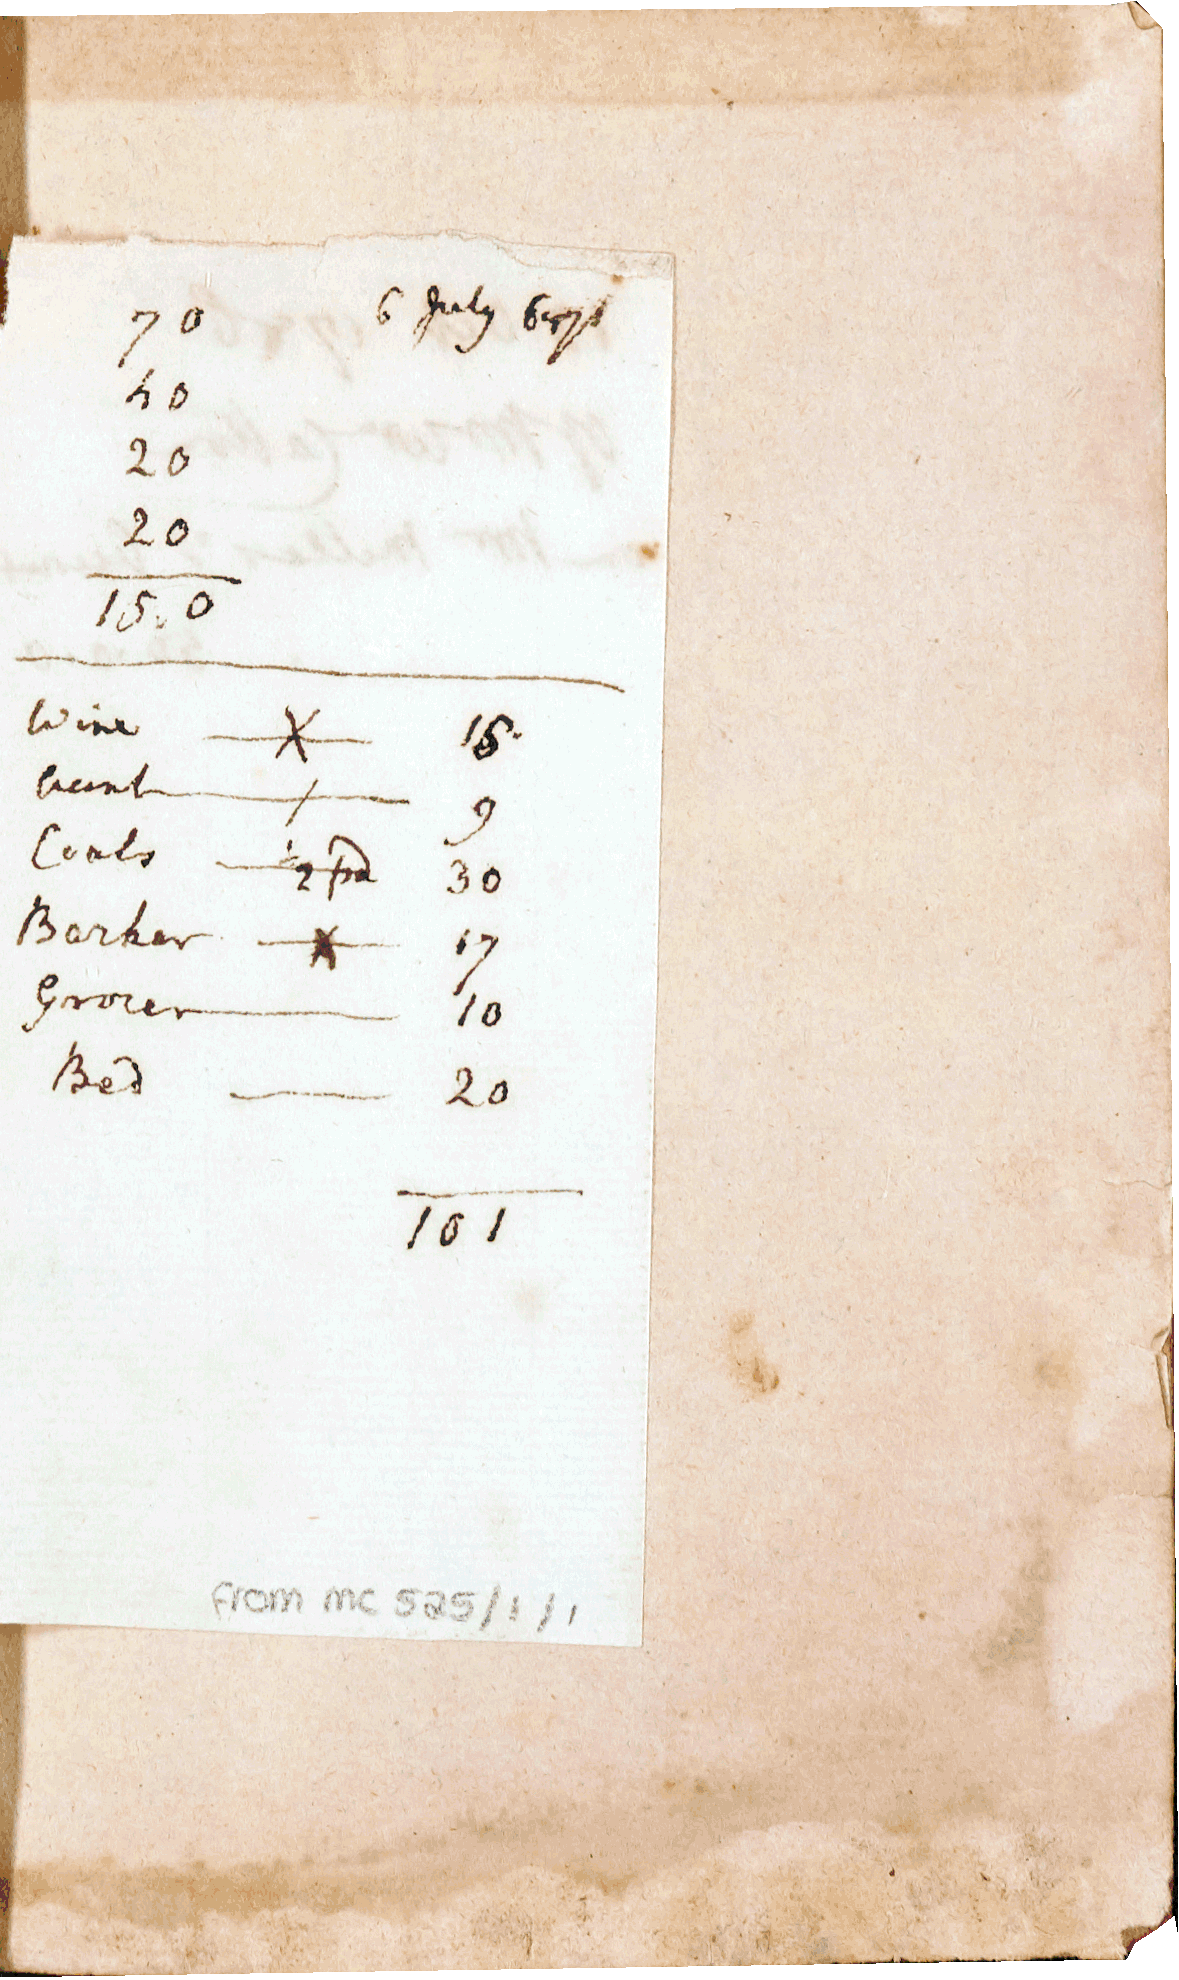 70 6 July
40
20
20
150
Wine X 15
Aunt / 9
Coals 2 pd 30
Barker X 17
Grocer 10
Bed 20
101
from mc 525/1/1